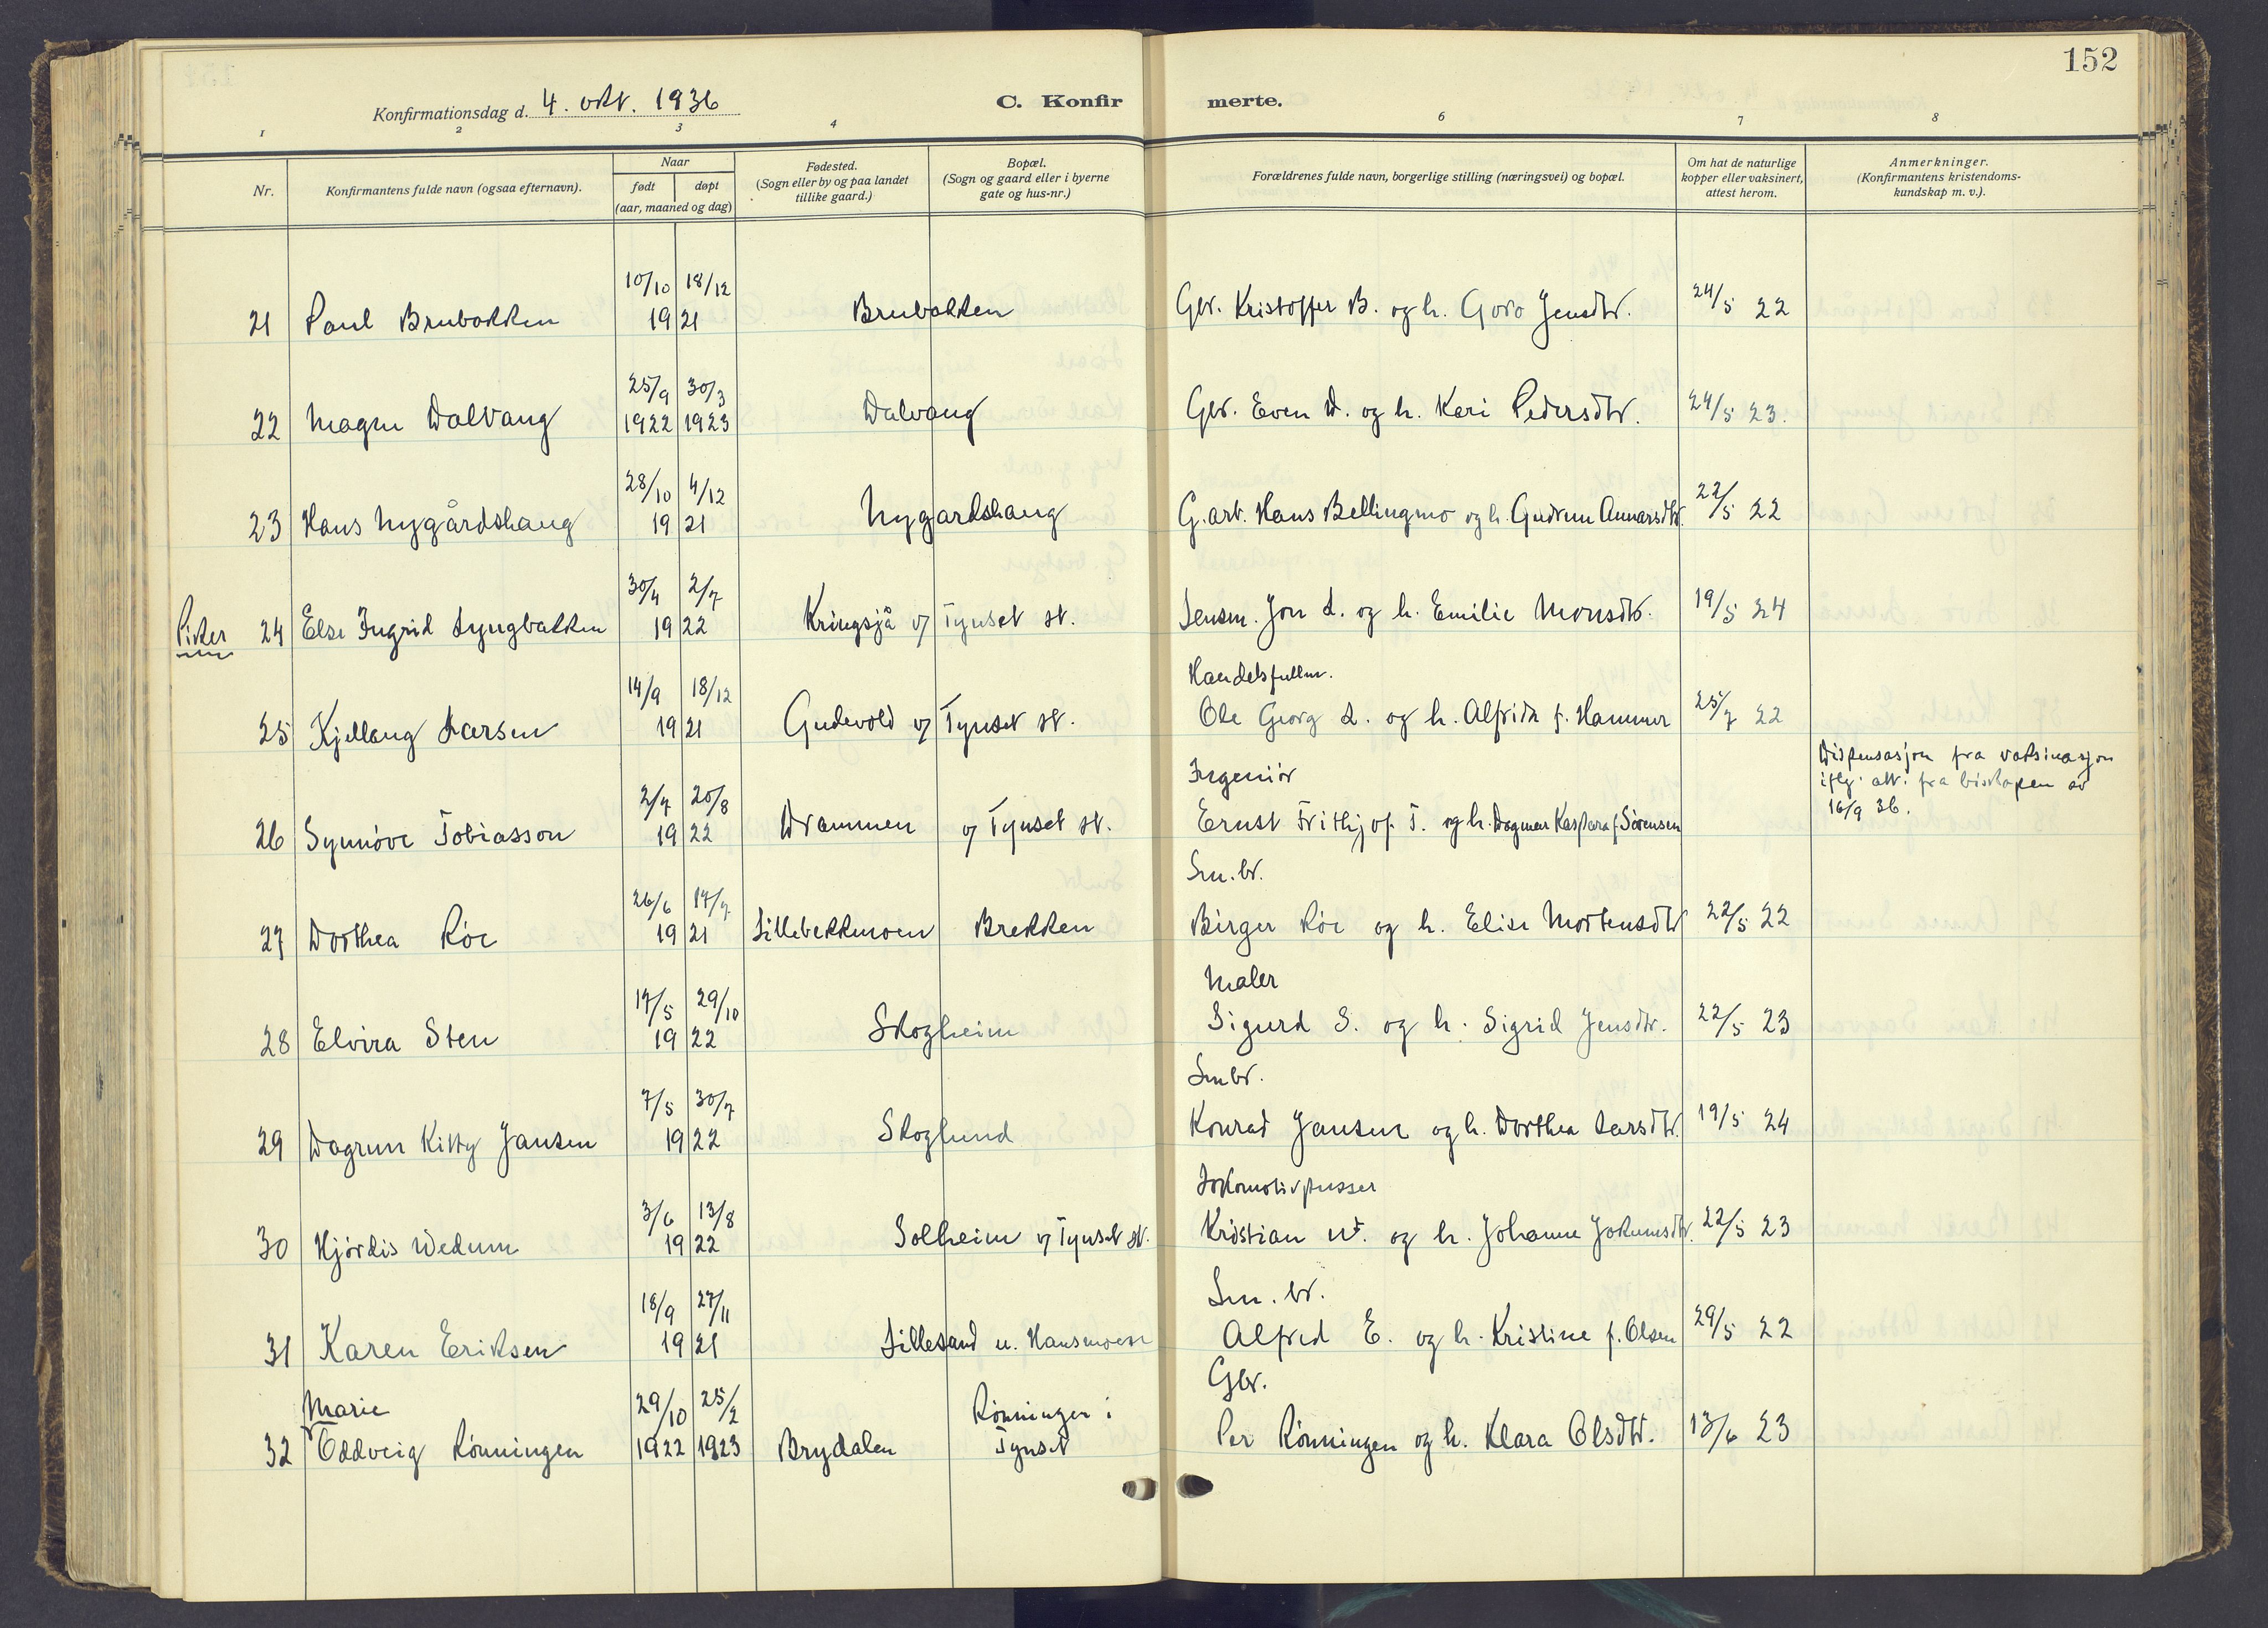 152
Konfirmationsdag d. 4. okt. 1936
C. Konfir merte.
1 2 3 4 6 7 8
Nr.
Konfirmantens fulde navn (ogsaa efternavn).
Naar
født døpt
(aar, maaned og dag)
Fødested.
(Sogn eller by og paa landet
tillike gaard.)
Bopæl.
(Sogn og gaard eller i byerne
gate og hus-nr.)
Forældrenes fulde navn, borgerlige stilling (næringsvei) og bopæl.
Om hat de naturlige
kopper eller vaksinert,
attest herom.
Anmerkninger.
(Konfirmantens kristendoms-
kundskap m. v.).
10/10 18/12
21 Paul Brubakken 19 21 Brubakken Gbr. Kristoffer B. og h. Goro Jensdtr. 24/5 22
25/9 30/3
22 Magne Dalvang 1922 1923 Dalvang Gbr. Even D. og h. Kari Pedersdtr. 24/5 23.
28/10 4/12
23 Hans Nygårdshaug 19 21 Nygardshaug G.arb. Hans Bellingmo og h. Gudrun Annarsdtr. 22/5 22
30/4 2/7
Piker 24 Else Ingrid Lyngbakken 19 22 Kringsjå v/ Tynset st. Lensm. Jon L. og h. Emilie Monsdtr. 19/5 24
14/9 18/12 Handelsfullm.
25 Kjellaug Larsen 19 21 Gudevold v/ Tynset st. Ole Georg L. og h. Alfrida f. Hammer 25/7 22
Dispensasjon fra vaksinasjon
iflg. att. fra biskopen av
16/9 36.
2/7 20/8 Ingeniör
26 Synnöve Tobiasson 19 22 Drammen v/ Tynset st. Ernst Frithjof T. og h. Dagmar Kaspara f. Sörensen
26/6 17/7 Sm.br.
27 Dorthea Röe 19 21 Lillebekkmoen Brekken Birger Röe og h. Elise Mortensdtr 22/5 22
17/5 29/10 Maler
28 Elvira Sten 19 22 Skogheim Sigurd S. og h. Sigrid Jensdtr. 22/5 23
7/5 30/7 Smbr.
29 Dagrun Kitty Jansen 19 22 Skoglund Konrad Jansen og h. Dorthea Larsdtr. 19/5 24
3/6 13/8 Lokomotivpusser
30 Hjördis Wedum 19 22 Solheim v/ Tynset st. Kristian W. og h. Johanne Jokumsdtr. 22/5 23
18/9 27/11 Sm. br.
31 Karen Eriksen 19 21 Lillesand u. Hansmoen Alfred E. og h. Kristine f. Olsen 29/5 22
Marie 29/10 25/2 Rönningen i Gbr.
32 Oddveig Rönningen 1922 1923 Brydalen Tynset Per Rönningen og h. Klara Olsdtr. 13/6 23